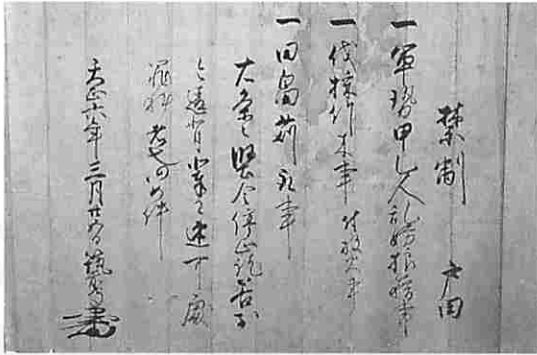 禁制 戸田
一軍勢甲乙人乱妨狼藉事
一伐採竹木事 付放火事
一田畠苅取事
右条々堅令停止訖若於
令違背輩者速可処
罪科者也仍如件
天正六年三月廿九日筑前守